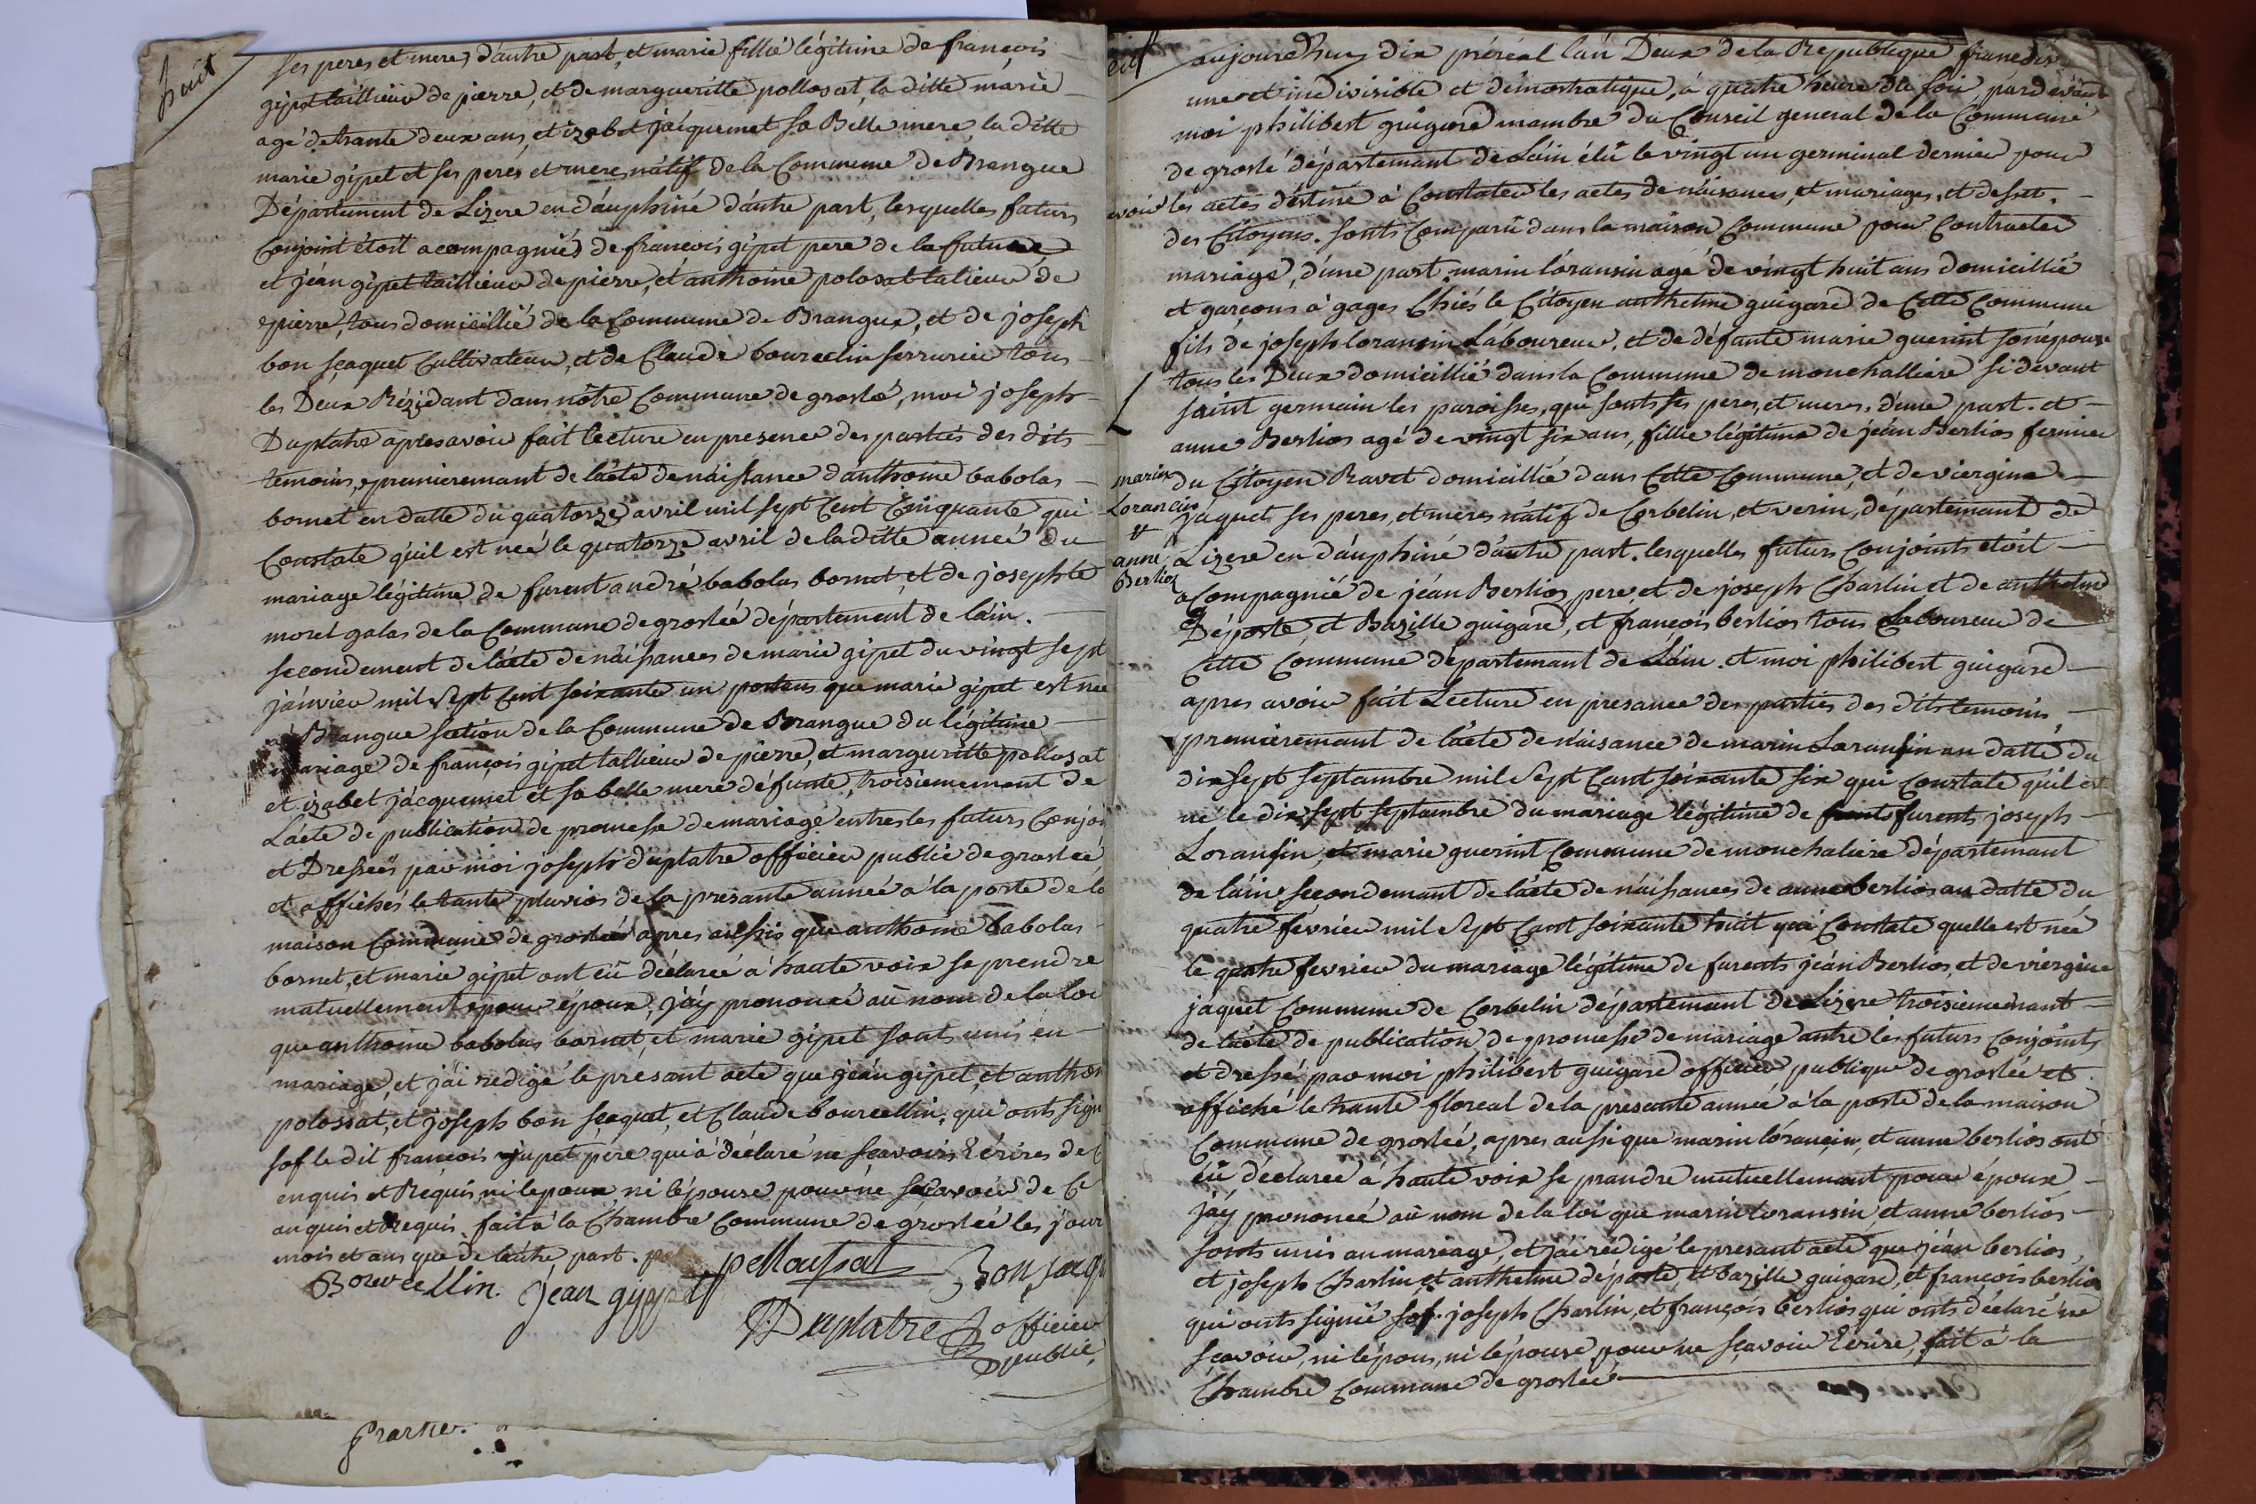 huit
ses peres et meres d'autre part, et marie fillié légitime de françois
gipet taillieur de pierre, et de margueritte pollosat, la ditte marie
agé de trante deux ans, et izabet jacquemet sa Belle mere, la ditte
marie gipet et ses peres et meres nâtif de la Commune de Brangue
Département de Lizere en dauphiné d'autre part, lesquelles futurs
Conjoint étoit acompagniés de françois gipet pere de la future
et jéan gipet taillieur de pierre, et anthoine polosat talieur de
pierre, tous domicillié de la Commune de Brangue, et de joseph
bon jcaquet Cultivateur, et de Claude bourcelin serrurier tous
les Deux Rézidant dans nôtre Commune de groslé, moi joseph
Duplatre apres avoir fait lecture en presence des partiés des dits
temoins, premierement de lácte de náissance d'anthoine babolas
bornet en datte du quatorze avril mil sept Cent Cinquante qui
Constate quil est neé le quatorze avril de la ditte anneé du
mariage légitime de furent andré babolas bornet, et de josephte
moret galas de la Commune de groslée département de láin.
secondement de lácte de náissances de marie gipet du vingt sept
jánvier mil Sept Cent soixante un portans que marie gipet est née
à Brangue section de la Commune de Brangue du légitime
mariage de françois gipet tallieur de pierre, et margueritte pollosat
et izabet jácquemet et sa belle mere défunte, troisiemement de
Lácte de publication de promesse de mariage entres les futurs Conjoi
et Dresseés par moi joseph duplatre officier public de groslée
et affichés le tante pluvios de la presante anneé à la porte de la
maison Commune de grosleé apres aussis que anthoine babolas
bornet, et marie gipet ont eû déclareé à haute voix se prendre
matuellement pour époux, j'áy prononcé aû nom de la loi
que anthoine babolas bornet, et marie gipet sont unis en
mariage, et j'ái redigé le presant acte que jéan gipet, et anthoi
polossat, et joseph bon jcaquet, et Claude bourcellin, qui onts sign
sof le dit françois gipet pére qui à déclaré ne sçavoirs Ecrires de C
enquis et Requis, ni lepoux, ni lépouse, pour ne sçavoir de C
anquis et Requis. fait à la Chambre Commune de groslée les jour
mois et ans que de laûtre part.
Bourcellin. jean gyppet pelloussat Bon jacq
Duplatre officier
public
aujourdhuy dix préréal l'an Deux de la Republique françoise
une et indivisible et démocratique, à quatre heure du soir, pardevant
moi philibert guigard mambre du Conseil general de la Commune
de groslé département de Láin élû le vingt un germinal dernier pour
avoir les actes déstiné à Constater les actes de náisances, et mariages, et desset
des Citoyens. sonts Comparû dans la maison Commune pour Contracter
mariage, d'une part marin lóransin agé de vingt huit ans domicillié
et garçons à gages Chiés le Citoyen anthelme guigard de Cette Commune
fils de joseph loransin Láboureur, et de défante marie guerint son épouse
tous les Deux domicillié dans la Commune de mouchalliere si devant
saint germain les paroisses, qui sonts ses peres, et meres, d'une part. et
anne Berlios agé de vingt six ans, fillie légitime de jeán Berlios fermier
du Citoyen Ravet domicillié dans Cette Commune, et de viergine
jaquet ses peres, et meres nátif de Corbelin, et verin, département de
Lizere en dauphiné d'autre part. lesquelles futurs Conjoints etoit
acompagnié de jeán Berlios pere et de joseph Charlin et de anthelme
Déporte, et Bazille guigard, et françois berlios tous Laboureur de
Cette Commune département de Láin. et moi philibert guigard
apres avoir fait Lecture en presance des partiés des dits temoins,
premieremant de lácte de naisance de marin Loransin an datté du
dix sept septambre mil Sept Cant soixante six qui Constate quil est
né le dix sept septambre du mariage légitime de furents joseph
Loransin et marie guerint Commune de mouchaliere départemant
de láin, secondemant de lácte de náissances de anne berlios an datte du
quatre février mil Sept Cant soixante huit qui Constate quelle est née
le quatre fevrier du mareage légitime de furents jeán Berlios, et de viergine
jaquet Commune de Corbelin département de Lizere troisiememant
de lácte de publication de promesse de mariage antre les futurs Conjoints
et dressé par moi philibert guigard officier publique de groslée et
affiché le trante floreal de la presante année à la porte de la maison
Commune de groslée, apres aussi que marin lóransin, et anne berlios ont
eû déclareé à haute voix se prandre mutuellemant pour époux
jáy prononcé aû nom de la loi que marin loransin, et anne berlios
sonts unis an mariage, et j'ái rédigé le presant acte que jéan berlios,
et joseph Charlin, et anthelme déporte, et bazille guigard, et françois berlios
qui onts signié sof. joseph Charlin, et françois berlios, qui onts déclaré ne
sçavoir, ni lépous, ni lépouse pour ne sçavoir Ecrire, fait à la
Chambre Commune de groslée
marin
Lorancin
et
anne
Berlioz